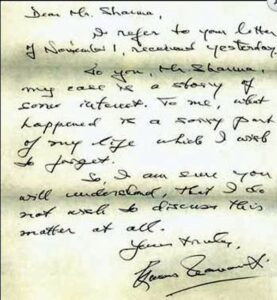 Dear Mr. Sharma,
I refer to your letter
of November 1, received yesterday.
To you, Mr. Sharma,
my case is a story of
some interest. To me, what
happened is a sorry part
of my life which I wish
to forget.
So, I am sure you
will understand, that I do
not wish to discuss this
matter at all.
Yours truly,